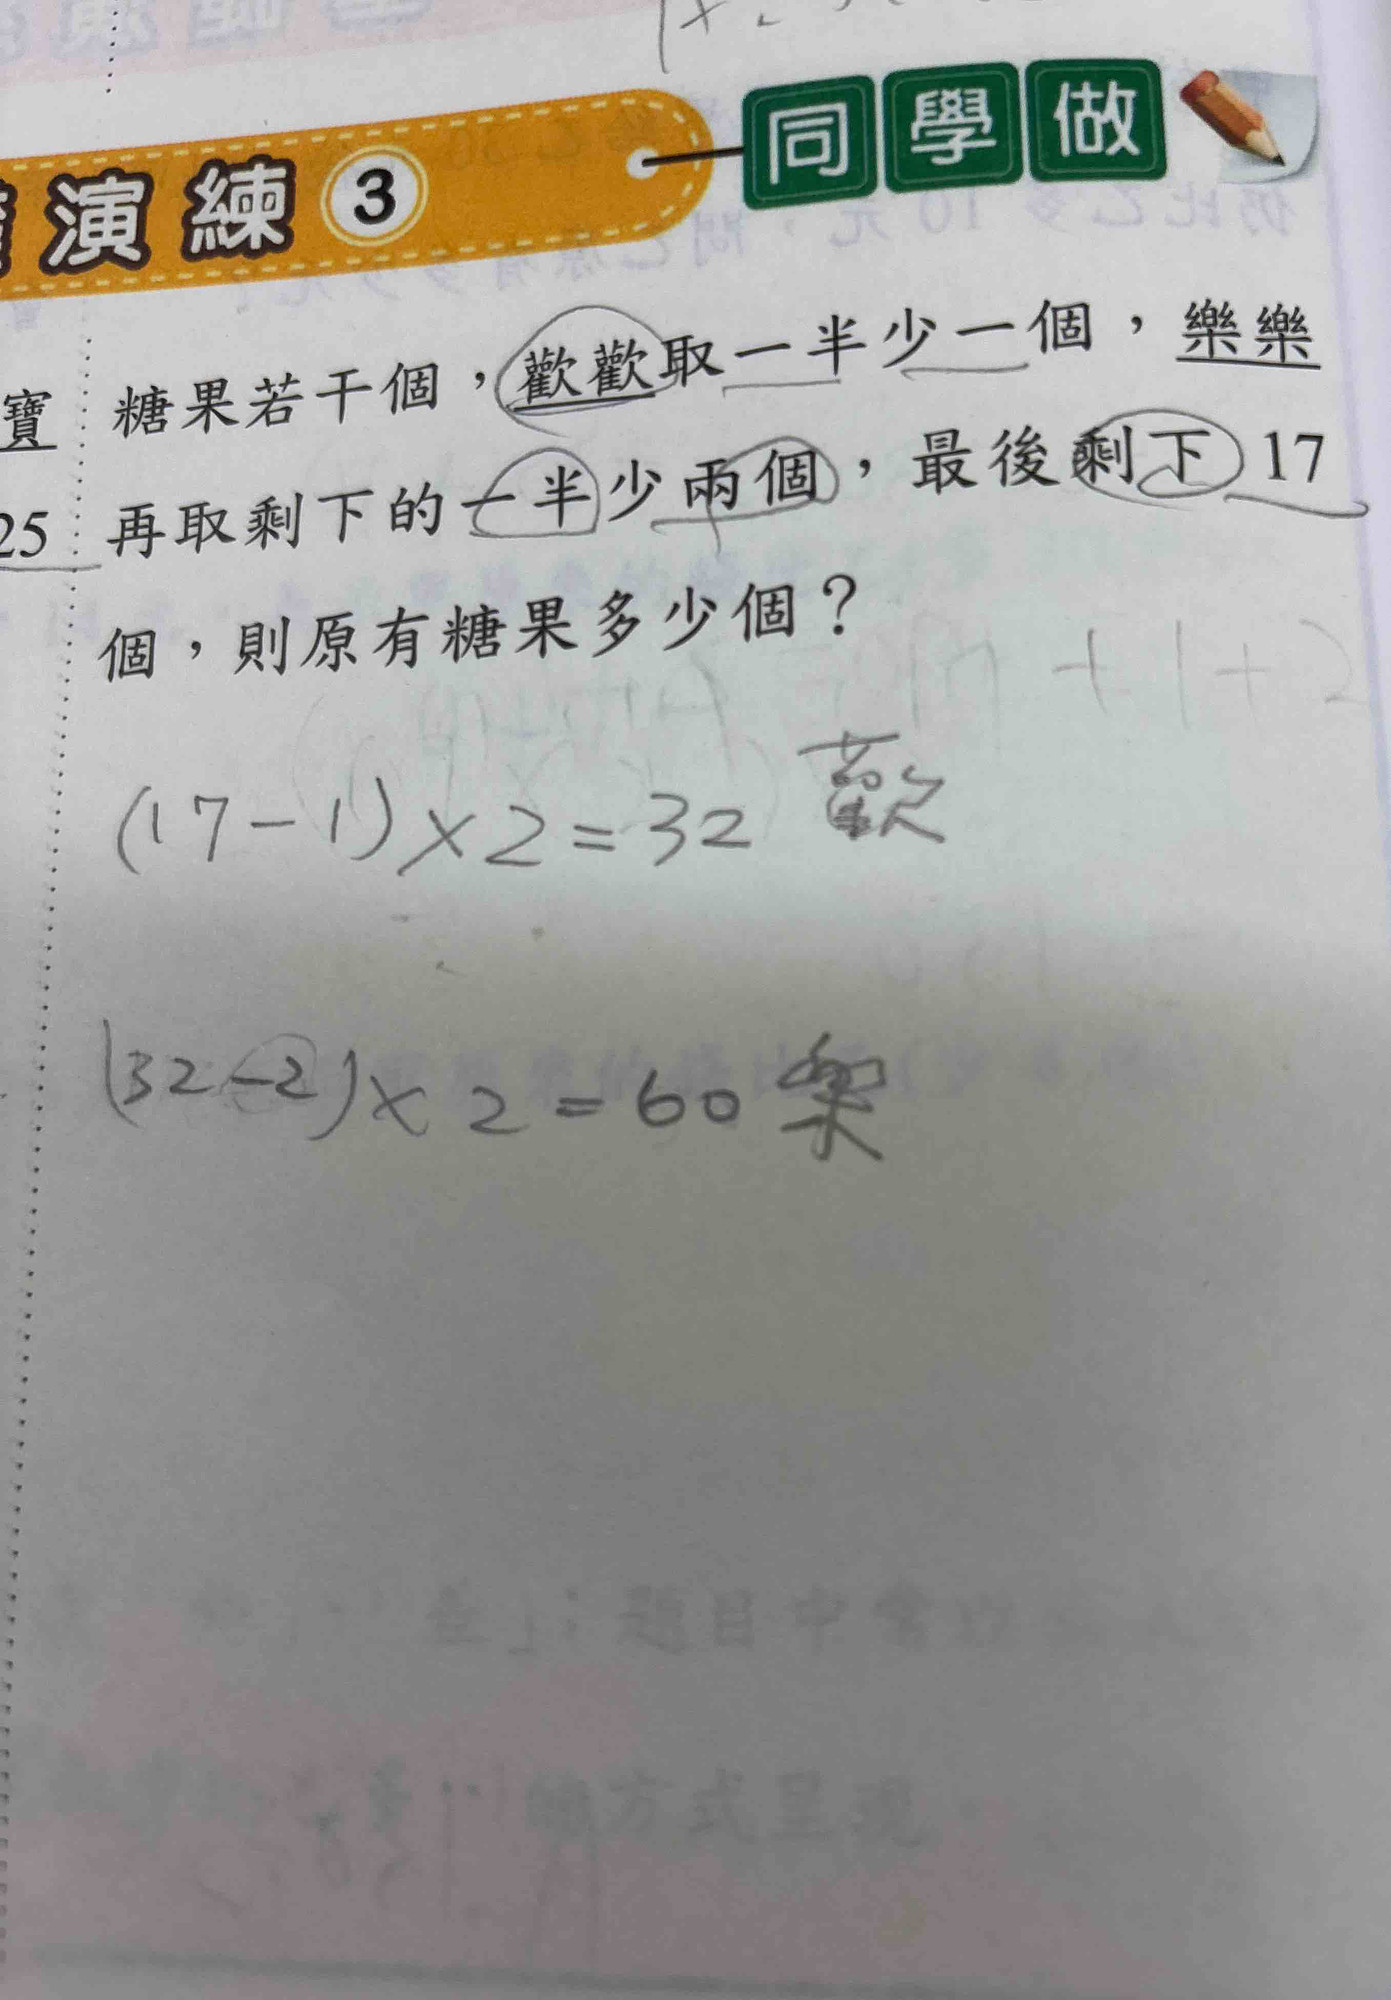 演練3 同學做
糖果若干個，歡歡取一半少一個，樂樂
寶
再取剩下的一半少兩個，最後剩下17
25
個，則原有糖果多少個？
+1+2
(17-1)×2=32 歡
(32-2)×2=60 樂